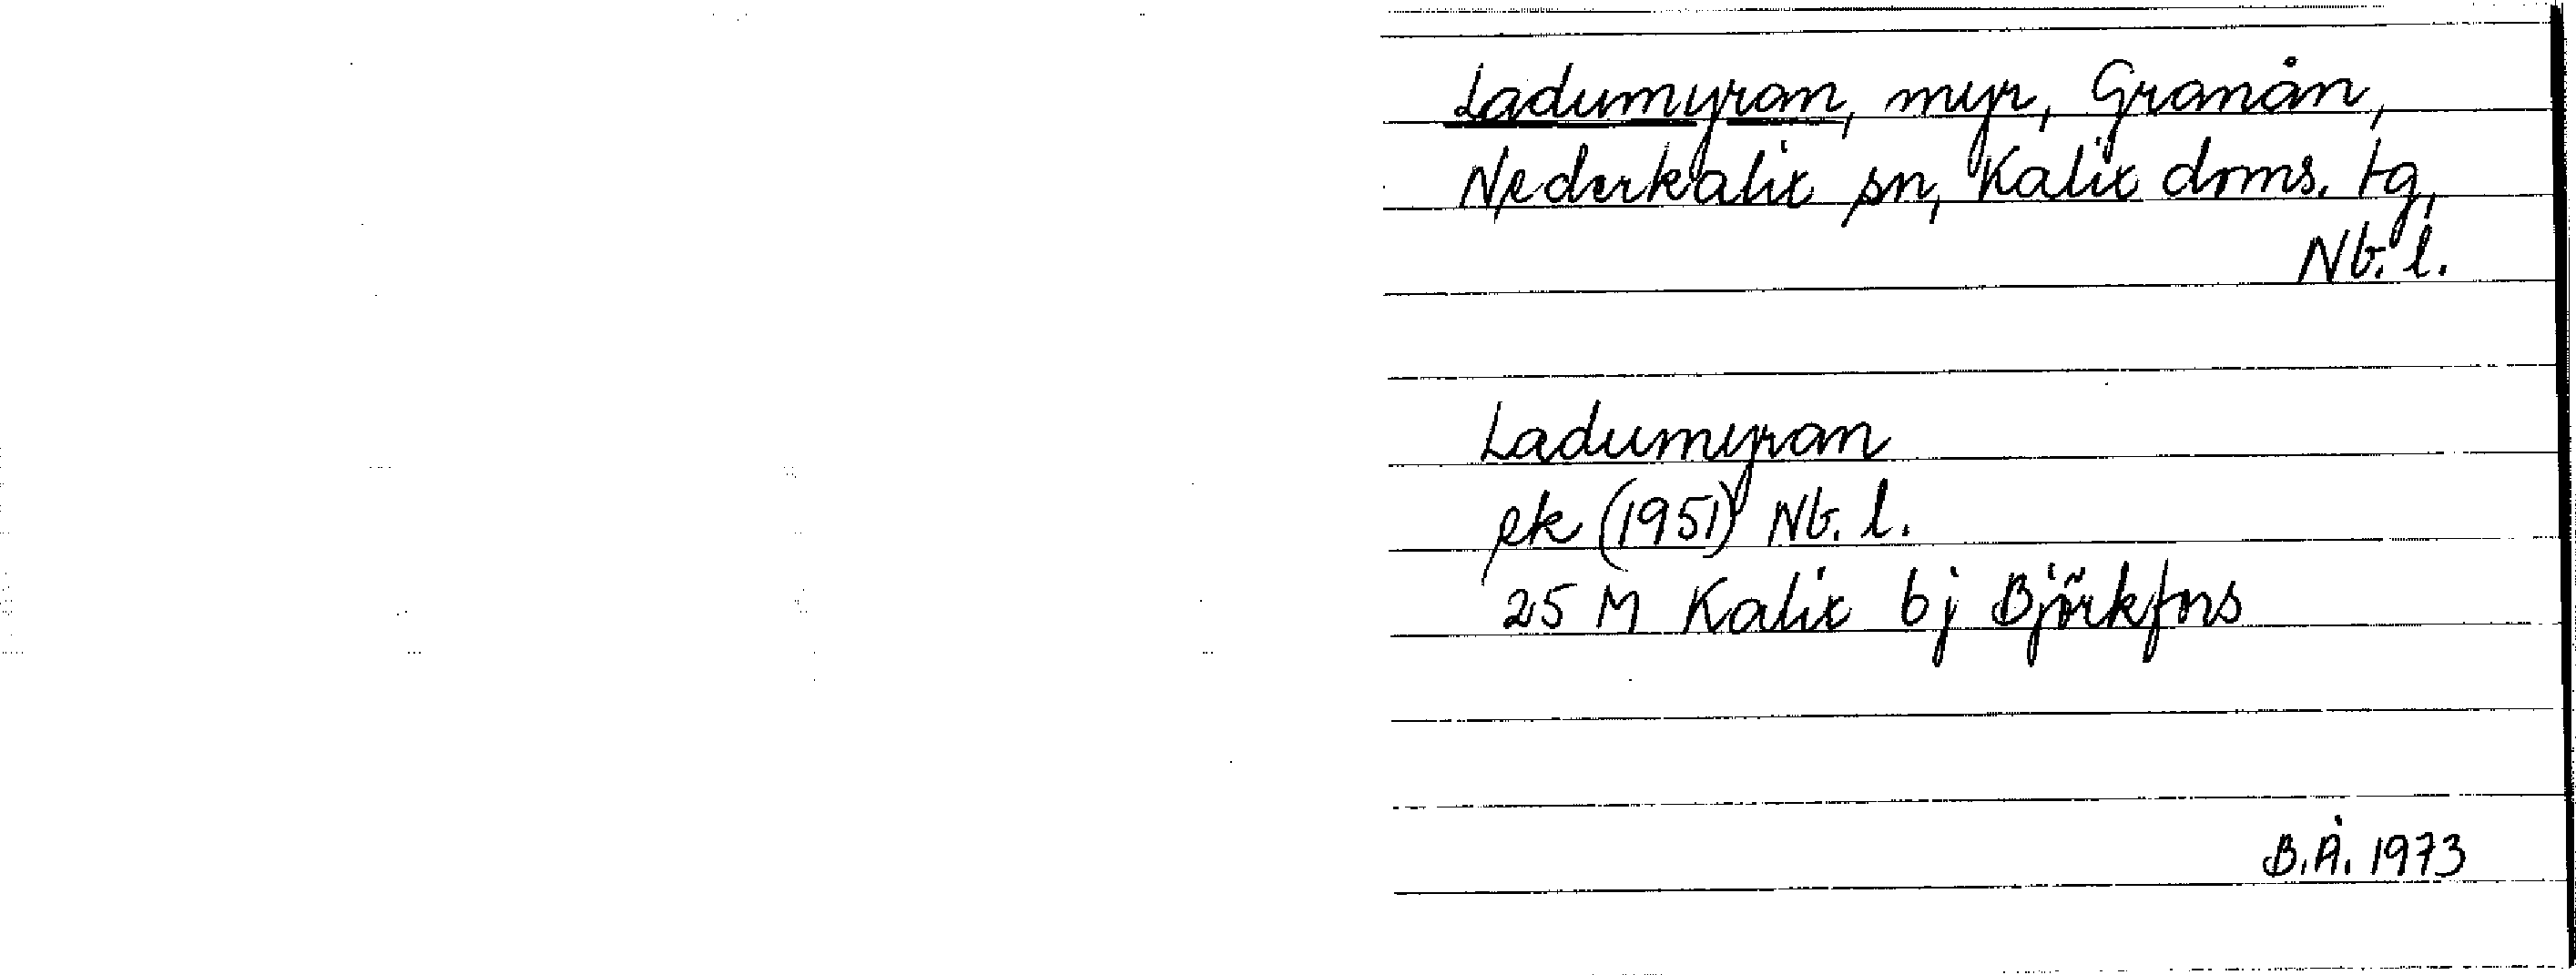 Ladumyran, myr, Granån,
Nederkalix sn, Kalix doms. tg,
Nb. l.
Ladumyran
ek (1951) Nb. l.
25 M Kalix 6j Björkfors
B.Å. 1973